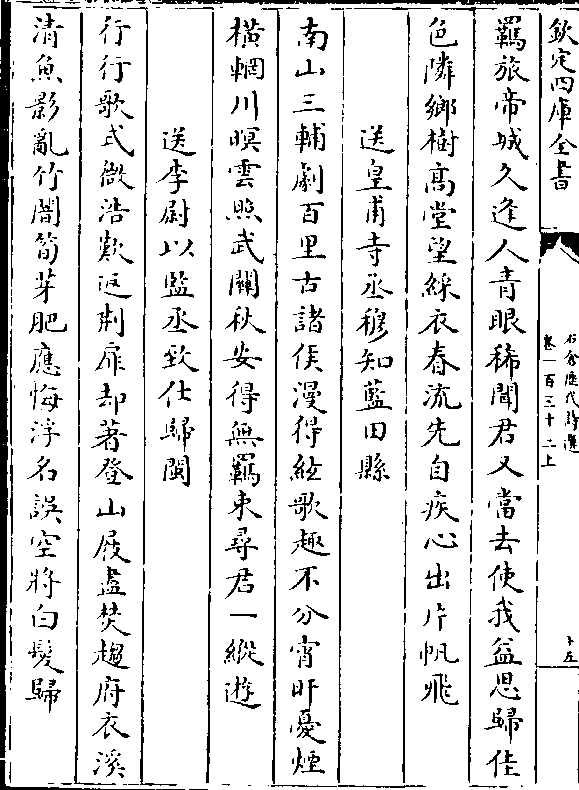 欽定四庫全書
石倉歷代詩選
卷一百三十二上
十五
羈旅帝城久逢人青眼稀聞君又當去使我益思歸佳
色隣鄉樹髙堂望綵衣春流先自疾心出片帆飛
送皇甫寺丞穆知藍田縣
南山三輔劇百里古諸侯漫得絃歌趣不分宵旰憂煙
橫輞川暝雲照武關秋安得無羈束尋君一縱遊
送李尉以監丞致仕歸閩
行行歌式微浩歎返荆扉却著登山屐盡焚趨府衣溪
清魚影亂竹闇筍芽肥應悔浮名誤空將白髮歸